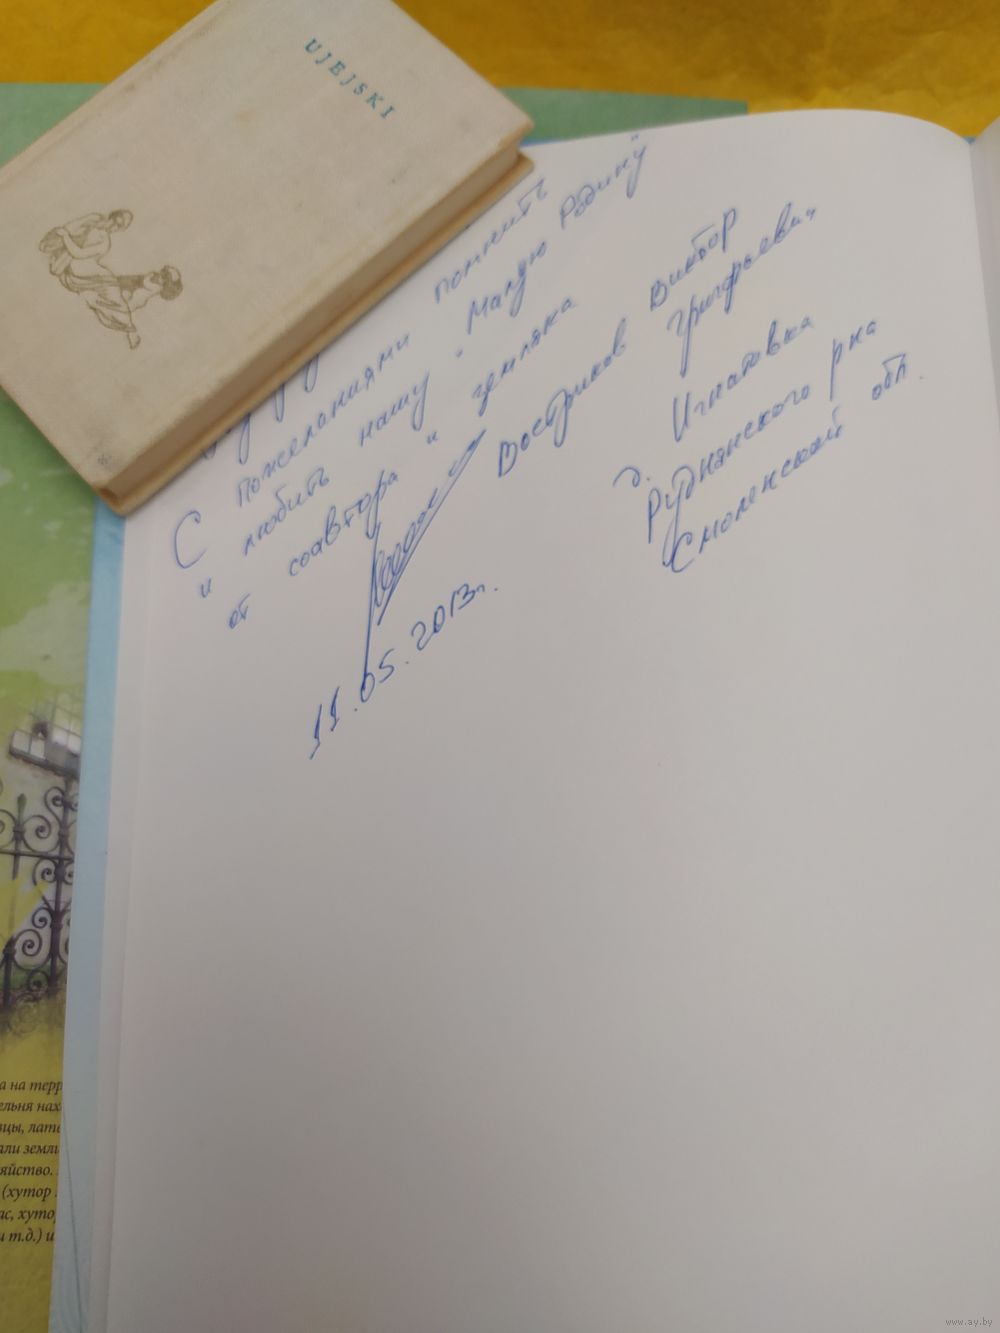 UJEJSKI
С пожеланиями помнить
и любить нашу "Малую Родину"
от соавтора и земляка
Востриков Виктор
Григорьевич
д. Игнатовка
Руднянского р-на
Смоленской обл.
11.05.2013г.
а на терр
ельня нах
вцы, лат
али земл
яйство.
(хутор
ас, хуто
и т.д.) и
www.ay.by